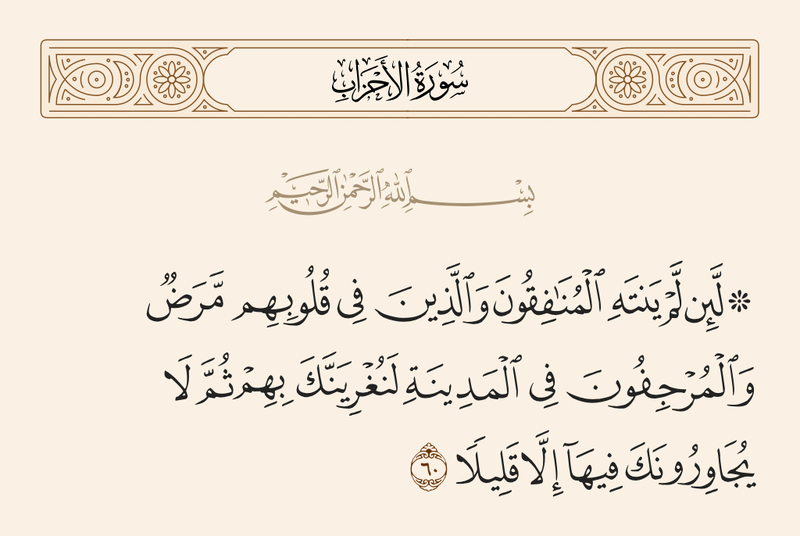 سُورَةُ الأَحْزَابِ
بِسْمِ ٱللَّهِ ٱلرَّحْمَٰنِ ٱلرَّحِيمِ
۞ لَّئِن لَّمْ يَنتَهِ ٱلْمُنَٰفِقُونَ وَٱلَّذِينَ فِى قُلُوبِهِم مَّرَضٌ
وَٱلْمُرْجِفُونَ فِى ٱلْمَدِينَةِ لَنُغْرِيَنَّكَ بِهِمْ ثُمَّ لَا
يُجَاوِرُونَكَ فِيهَآ إِلَّا قَلِيلًا ٦٠